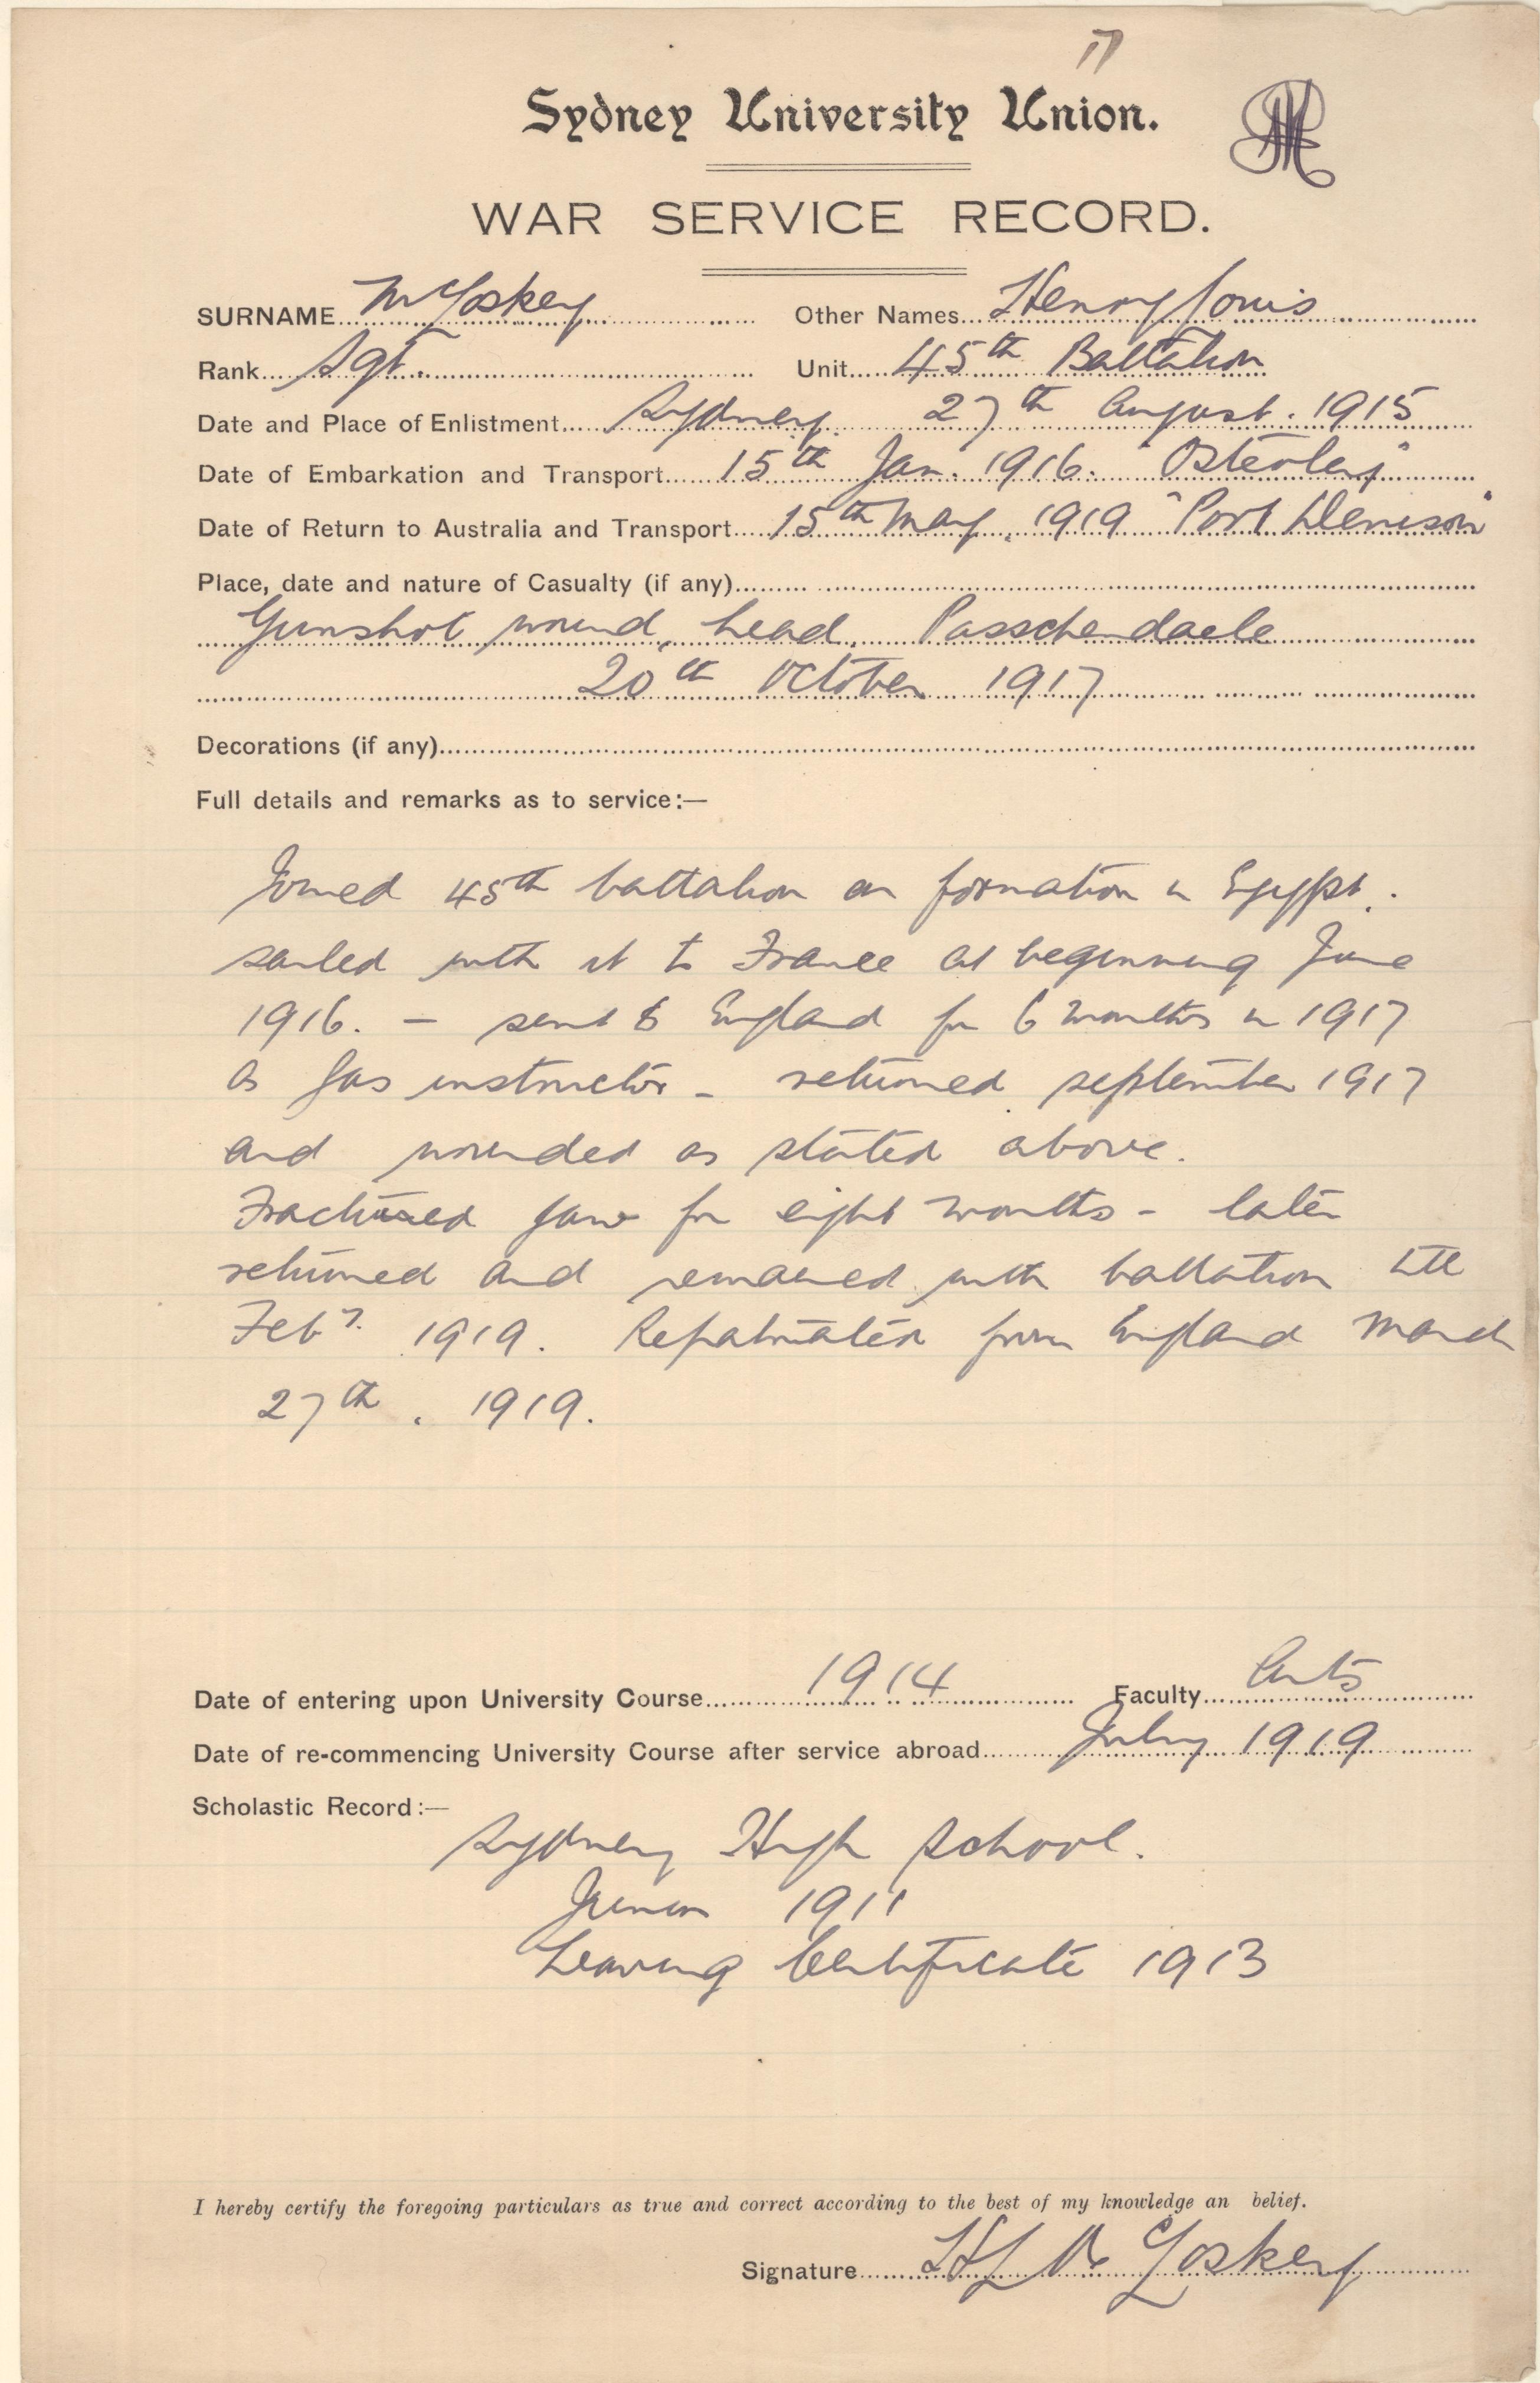 17
Sydney University Union.
WAR SERVICE RECORD.
SURNAME McLoskey Other Names Henry Louis
Rank Sgt. Unit 45th Battalion
Date and Place of Enlistment Sydney. 27th August. 1915
Date of Embarkation and Transport 15th Jan. 1916. "Osterley"
Date of Return to Australia and Transport 15th May, 1919 "Port Denison"
Place, date and nature of Casualty (if any)
Gunshot wound, head, Passchendaele
20th October 1917
Decorations (if any)
Full details and remarks as to service:—
Joined 45th battalion on formation in Egypt.
sailed with it to France at beginning June
1916. – sent to England for 6 months in 1917
as Gas instructor – returned september 1917
and wounded as stated above.
Fractured jaw for eight months – later
returned and remained with battalion till
Feby. 1919. Repatriated from England March
27th. 1919.
Date of entering upon University Course 1914 Faculty Arts
Date of re-commencing University Course after service abroad July 1919
Scholastic Record:—
Sydney High School.
Junior 1911
Leaving Certificate 1913
I hereby certify the foregoing particulars as true and correct according to the best of my knowledge an belief.
Signature HL McLoskey